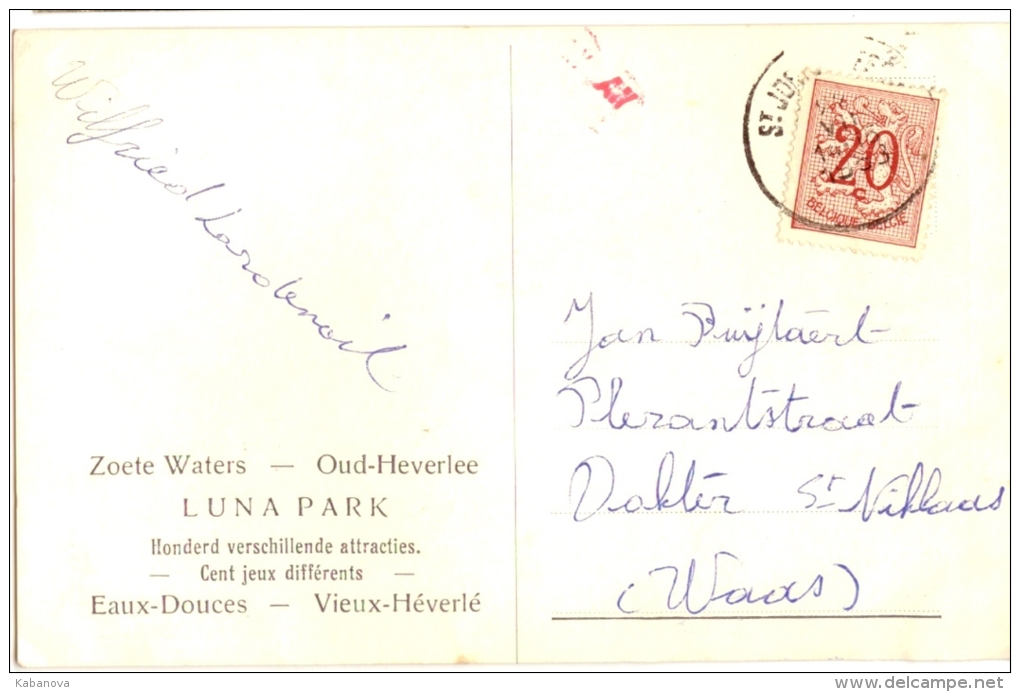 Wilfried Lardenoit
Zoete Waters — Oud-Heverlee
LUNA PARK
Honderd verschillende attracties.
— Cent jeux différents —
Eaux-Douces — Vieux-Héverlé
ST JOR
20
c
BELGIQUE-BELGIE
Jan Puijtaert
Plezantstraat
Doktér St Niklaas
(Waas)
Kabanova
www.delcampe.net